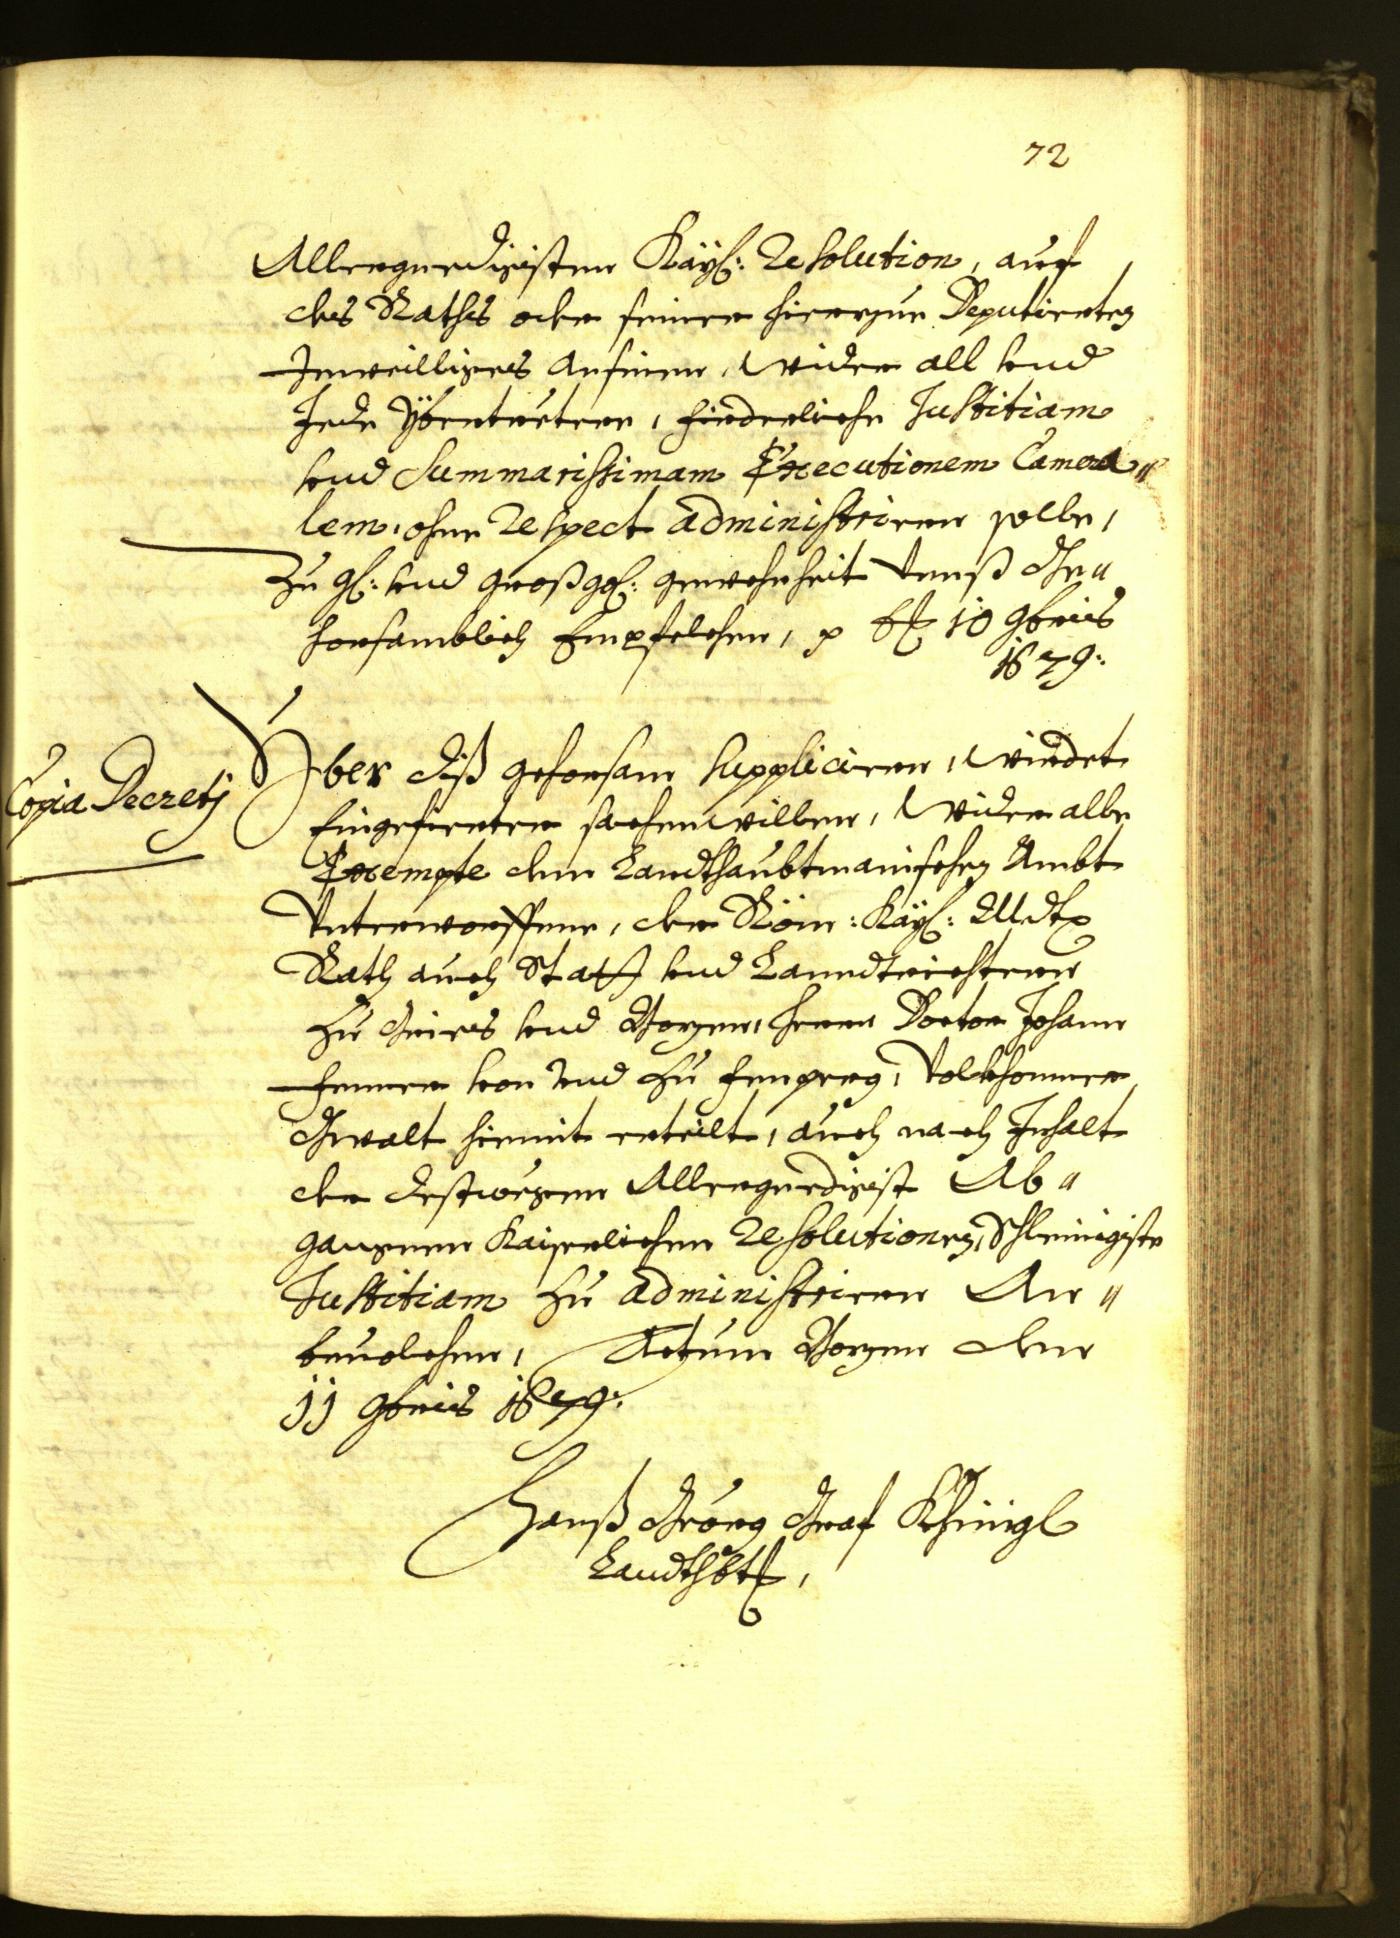 72
Allergnedigisten Kaÿ: Resolution, auf
des Raths oder seiner hierzue Deputierten
Jeweilliges ansuechen, wider all vnd
Jede Ybertretter, hinderliche Justitiam
vnd Summarissimam Executionem Camera"
lem, ohne Respect administrieren solle,
Zu gl: vnd großgl: gewohnheit vnnß Ge"
horsamblich Empfelchen, p dt 10 9bris
1679:
Copia Decretj
Yber diß gehorsam Suppliciren, würdet
Eingefierter sachen willen, wider alle
Exempte dem Landthaubtmanischen Ambt
Vnterworffene, der Röm: Kaÿ: Maÿtt
Rath auch Statt vnd Lanndtrichtern
zu Gries vnd Bozen, herrn Doctor Johann
von vnd zu fenperg, Volkhomner
Gwalt hiemit erteilt, auch nach Inhalt
der Allergnedigist Ab"
gangenen Kaiserlichen Resolutionen, Schleinigiste
Justitiam zu administrieren An"
beuolchen, Actum Bozen den
11 9bris 1679:
Hanß Geörg Graf Khünigl
Landtshbtm,